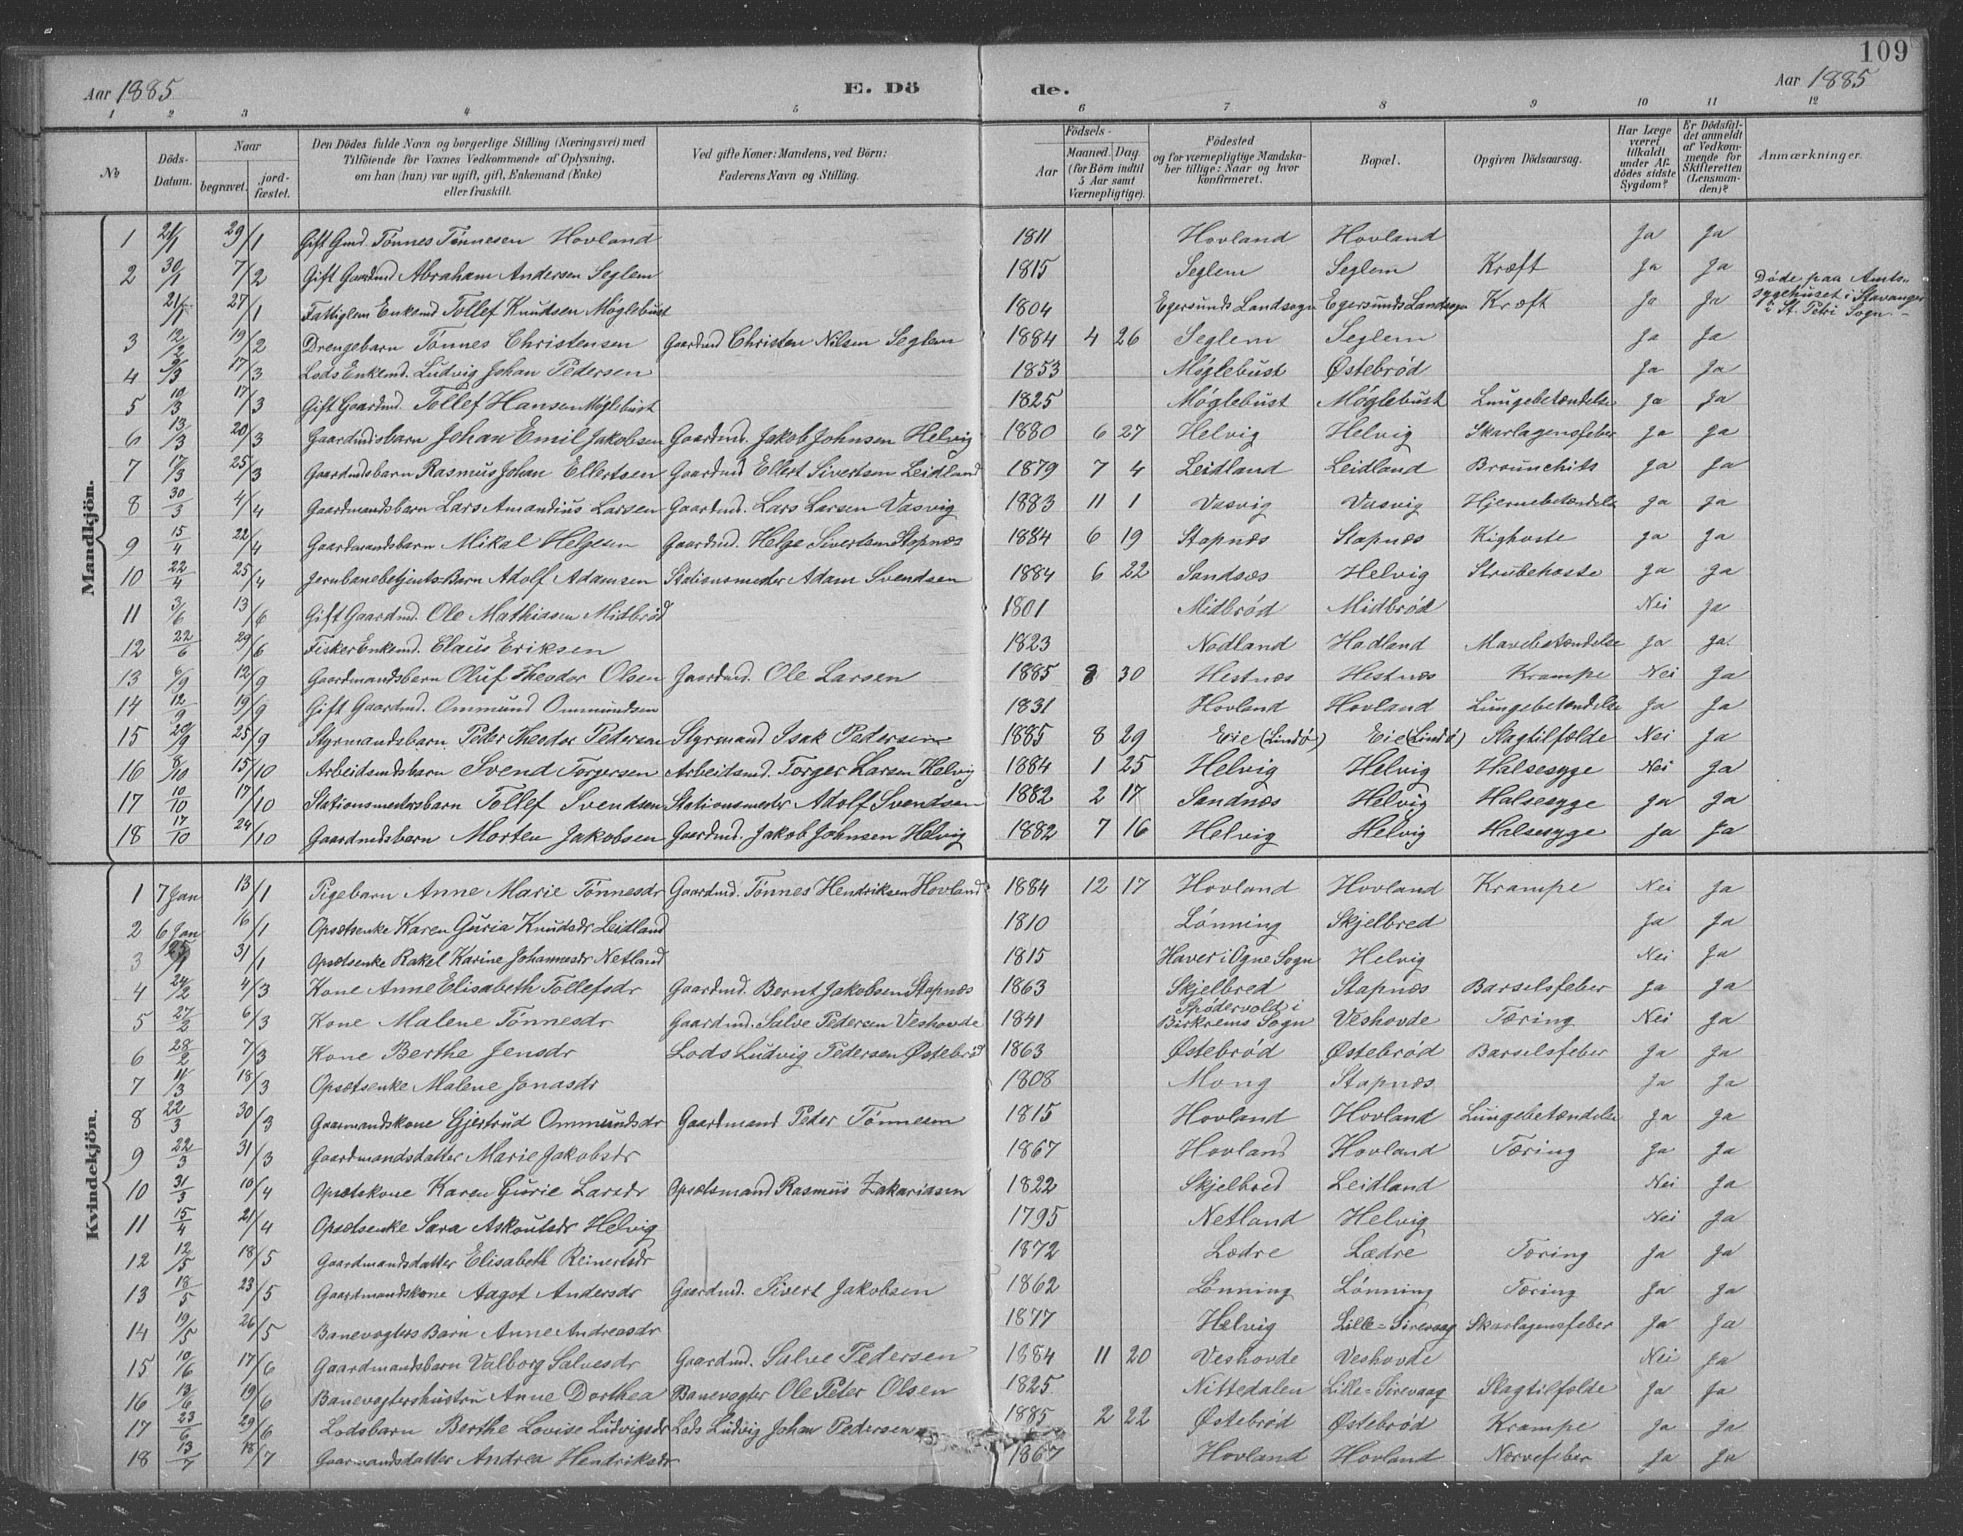 109
Aar 1885 E. Dö de. Aar 1885
1 2 3 4 5 6 7 8 9 10 11 12
No Döds-Datum. Naar begravet. jord-fæstet. Den Dödes fulde Navn og borgerlige Stilling (Næringsvei) med Tilföiende for Voxnes Vedkommende af Oplysning, om han (hun) var ugift, gift, Enkemand (Enke) eller fraskilt. Ved gifte Koner: Mandens, ved Börn: Faderens Navn og Stilling. Födsels- Aar Maaned. Dag (for Börn indtil 5 Aar samt Værnepligtige). Födested og for værnepligtige Mandska-ber tillige: Naar og hvor konfirmeret. Bopæl. Opgiven Dödsaarsag. Har Læge været tilkaldt under Af-dödes sidste Sygdom? Er Dödsfal-det anmeldt af Vedkom-mende for Skifteretten (Lensman-den)? Anmærkninger.
Mandkjön.
1 21/1 29/1 Gift Gmd. Tönnes Tönnesen Hovland 1811 Hovland Hovland Ja Ja
2 30/1 7/2 Gift Gaardmd Abraham Andersen Seglem 1815 Seglem Seglem Kræft Ja Ja
21/1 27/1 Fattiglem Enkemd Tollef Knudsen Møglebust 1804 Egersunds Landsogn Egersunds Landsogn Kræft Ja Ja Døde paa Amts-sygehuset i Stavanger i St. Petri Sogn.
3 12/2 19/2 Drengebarn Tönnes Christensen Gaardmd Christen Nilsen Seglem 1884 4 26 Seglem Seglem Ja Ja
4 9/3 17/3 Lods Enkemd. Ludvig Johan Pedersen 1853 Møglebust Østebrød Ja Ja
5 10/3 17/3 Gift Gaardmd. Tollef Hansen Møglebust 1825 Møglebust Møglebust Lungebetændelse Ja Ja
6 13/3 20/3 Gaardmdsbarn Johan Emil Jakobsen Gaardmd. Jakob Johnsen Helvig 1880 6 27 Helvig Helvig Skarlagensfeber Ja Ja
7 17/3 25/3 Gaardmdsbarn Rasmus Johan Ellertsen Gaardmd Ellert Sivertsen Leidland 1879 7 4 Leidland Leidland Brounchits Ja Ja
8 30/3 4/4 Gaardmandsbarn Lars Amandius Larsen Gaardmd. Lars Larsen Vasvig 1883 11 1 Vasvig Vasvig Hjernebetændelse Ja Ja
9 15/4 22/4 Gaardmandsbarn Mikal Helgesen Gaardmd. Helge Sivertsen Stapnæs 1884 6 19 Stapnæs Stapnæs Kighoste Ja Ja
10 22/4 25/4 Jernbanebetjents Barn Adolf Adamsen Stationsmester Adam Svendsen 1884 6 22 Sandsæs Helvig Strubehoste Ja Ja
11 3/6 13/6 Gift Gaardmd. Ole Mathiasen Midbrød 1801 Midbrød Midbrød Nei Ja
12 22/6 29/6 Fisker Enkemd. Claus Eriksen 1823 Nodland Hadland Mavebetændelse Ja Ja.
13 6/9 12/9 Gaardmandsbarn Oluf Theodor Olsen Gaardmd. Ole Larsen 1885 8 30 Hestnæs Hestnæs Krampe Nei Ja
14 12/9 19/9 Gift Gaardmd. Ommund Ommundsen 1831 Hovland Hovland Lungebetændelse Ja Ja
15 20/9 25/9 Styrmandsbarn Peter Theodor Pedersen Styrmand Isak Pedersen 1885 8 29 Eie (Lindø) Eie (Lindø) Slagtilfælde Nei Ja
16 8/10 15/10 Arbeidsmdsbarn Svend Torgersen Arbeidsmd. Torger Larsen Helvig 1884 1 25 Helvig Helvig Halsesyge Nei Ja
17 10/10 17/10 Stationsmestersbarn Tollef Svendsen Stationsmester Adolf Svendsen 1882 2 17 Sandnæs Helvig Halsesyge Ja Ja
18 17/10 24/10 Gaardmdsbarn Morten Jakobsen Gaardmd. Jakob Johnsen Helvig 1882 7 16 Helvig Helvig Halsesyge Ja Ja
Kvindekjön.
1 7 Jan 13/1 Pigebarn Anne Marie Tönnesdr Gaardmd. Tönnes Hendriksen Hovland 1884 12 17 Hovland Hovland Krampe Nei Ja
2 6 Jan 16/1 Opsætsenke Karen Guria Knudsdr Leidland 1810 Lønning Skjelbred Ja Ja
3 25/1 31/1 Opsætsenke Rakel Karine Johannesdr Netland 1815 Haver i Ogne Sogn Helvig Nei Ja
4 24/2 4/3 Kone Anne Elisabeth Tollefsdr Gaardmd. Bernt Jakobsen Stapnæs 1863 Skjelbred Stapnæs Barselsfeber Ja Ja
5 27/2 6/3 Kone Malene Tönnesdr Gaardmd. Salve Pedersen Veshovde 1841 Spödervold i Birkrems Sogn Veshovde Tæring Nei Ja
6 28/2 7/3 Kone Berthe Jensdr Lods Ludvig Pedersen Østebrød 1863 Østebrød Østebrød Barselsfeber Ja Ja
7 11/3 18/3 Opsætsenke Malene Jonasdr 1808 Mong Stapnæs Ja Ja
8 22/3 30/3 Gaarmandskone Gjertrud Ommundsdr Gaardmand Peder Tönnesen 1815 Hovland Hovland Lungebetændelse Ja Ja
9 22/3 31/3 Gaardmandsdatter Marie Jakobsdr 1867 Hovland Hovland Tæring Ja Ja
10 31/3 10/4 Opsætskone Karen Gurie Larsdr Opsætsmand Rasmus Zakariasen 1822 Skjelbred Leidland Nei Ja
11 15/4 21/4 Opsætsenke Sara Askoutsdr Helvig 1795 Netland Helvig Nei Ja
12 12/5 18/5 Gaardmandsdatter Elisabeth Reinertsdr 1872 Lædre Lædre Tæring Ja Ja
13 18/5 23/5 Gaardmandskone Aagot Andersdr Gaardmd. Sivert Jakobsen 1862 Lønning Lønning Tæring Ja Ja
14 19/5 26/5 Banevogters Barn Anne Andreasdr 1877 Helvig Lille-Sirevaag Skarlagensfeber Ja Ja
15 10/6 17/6 Gaardmandsbarn Valborg Salvesdr Gaardmd. Salve Pedersen 1884 11 20 Veshovde Veshovde Nei Ja
16 13/6 19/6 Banevogtershustru Anne Dorthea Banevogter Ole Peter Olsen 1825 Nittedalen Lille-Sirevaag Slagtilfælde Ja Ja
17 23/6 29/6 Lodsbarn Berthe Lovise Ludvigsdr Lods Ludvig Johan Pedersen 1885 2 22 Østebrød Østebrød Krampe Ja Ja
18 13/7 18/7 Gaarmandsdatter Andrea Hendriksdr 1867 Hovland Hovland Nervefeber Ja Ja